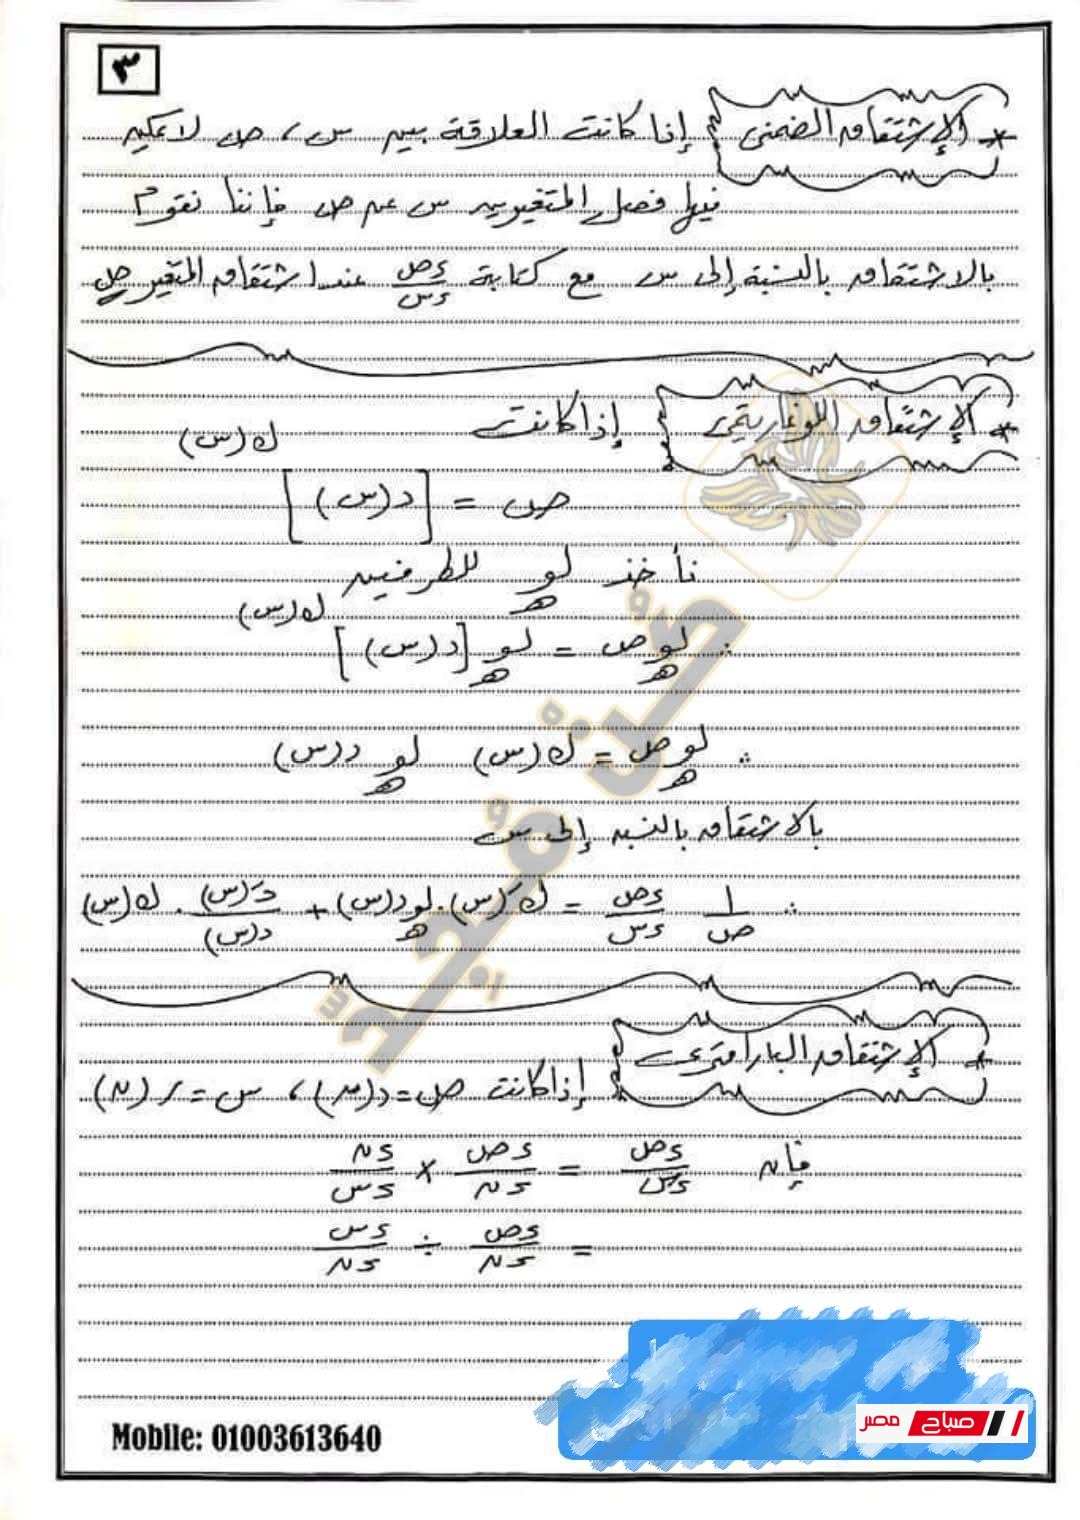 ٣
* الإشتقاق الضمنى إذا كانت العلاقة بين س ، ص لا يمكن
فيها فصل المتغيرين س عن ص فإننا نقوم
بالاشتقاق بالنسبة إلى س مع كتابة ءص/ءس عند اشتقاق المتغير ص
* الإشتقاق اللوغاريتمى إذا كانت
ص = [د(س)]^ك(س)
نأخذ لوهـ للطرفين
∴ لوهـ ص = لوهـ [د(س)]^ك(س)
∴ لوهـ ص = ك(س) لوهـ د(س)
بالاشتقاق بالنسبه إلى س
∴ ١/ص ءص/ءس = كَ(س) . لوهـ د(س) + دَ(س)/د(س) . ك(س)
* الإشتقاق البارامترى
إذا كانت ص = د(ن) ، س = ر(ن)
فإن ءص/ءس = ءص/ءن × ءن/ءس
= ءص/ءن ÷ ءس/ءن
Mobile: 01003613640
صباح مصر